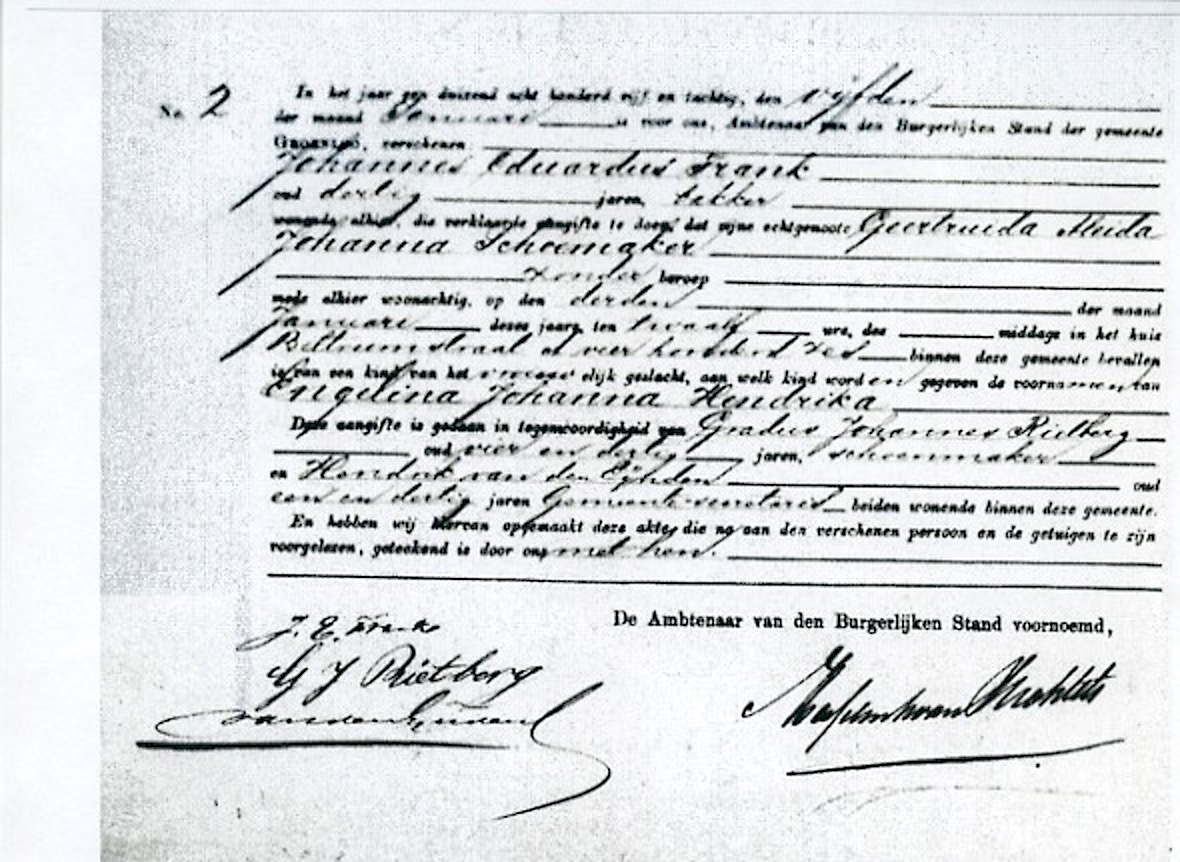 No. 2
In het jaar een duizend acht honderd vijf en tachtig, den vijfden
der maand Januari is voor ons, Ambtenaar van den Burgerlijken Stand der gemeente
GROENLOO, verschenen
Johannes Eduardus Frank
oud dertig jaren, bakker
wonende alhier, die verklaarde aangifte te doen, dat zijne echtgenoote Geertruida Aleida
Johanna Schoemaker
zonder beroep
mede alhier woonachtig, op den derden der maand
Januari dezes jaars, ten twaalf ure, des middags in het huis
Beltrumstraat vier honderd zes binnen deze gemeente bevallen
is van een kind van het vrouwelijk geslacht, aan welk kind worden gegeven de voornamen van
Engelina Johanna Hendrika
Deze aangifte is gedaan in tegenwoordigheid van Gradus Johannes Rietberg
oud vier en dertig jaren, schoenmaker
en Hendrik van den oud
een en dertig jaren Gemeente secretaris beiden wonende binnen deze gemeente.
En hebben wij hiervan opgemaakt deze akte, die na aan den verschenen persoon en de getuigen te zijn
voorgelezen, geteekend is door ons met hen.
De Ambtenaar van den Burgerlijken Stand voornoemd,
J. E. Frank
G J Rietberg